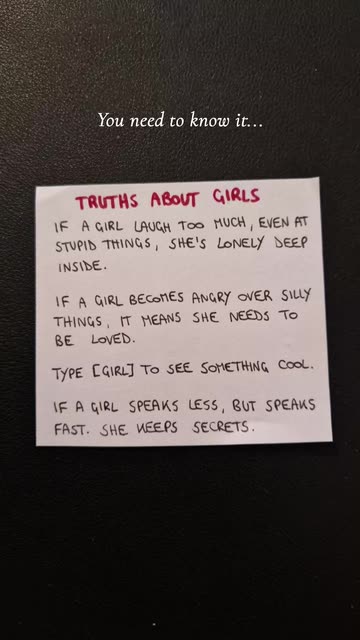 You need to know it...
TRUTHS ABOUT GIRLS
IF A GIRL LAUGH TOO MUCH, EVEN AT
STUPID THINGS, SHE'S LONELY DEEP
INSIDE.
IF A GIRL BECOMES ANGRY OVER SILLY
THINGS, IT MEANS SHE NEEDS TO
BE LOVED.
TYPE [GIRL] TO SEE SOMETHING COOL.
IF A GIRL SPEAKS LESS, BUT SPEAKS
FAST. SHE KEEPS SECRETS.